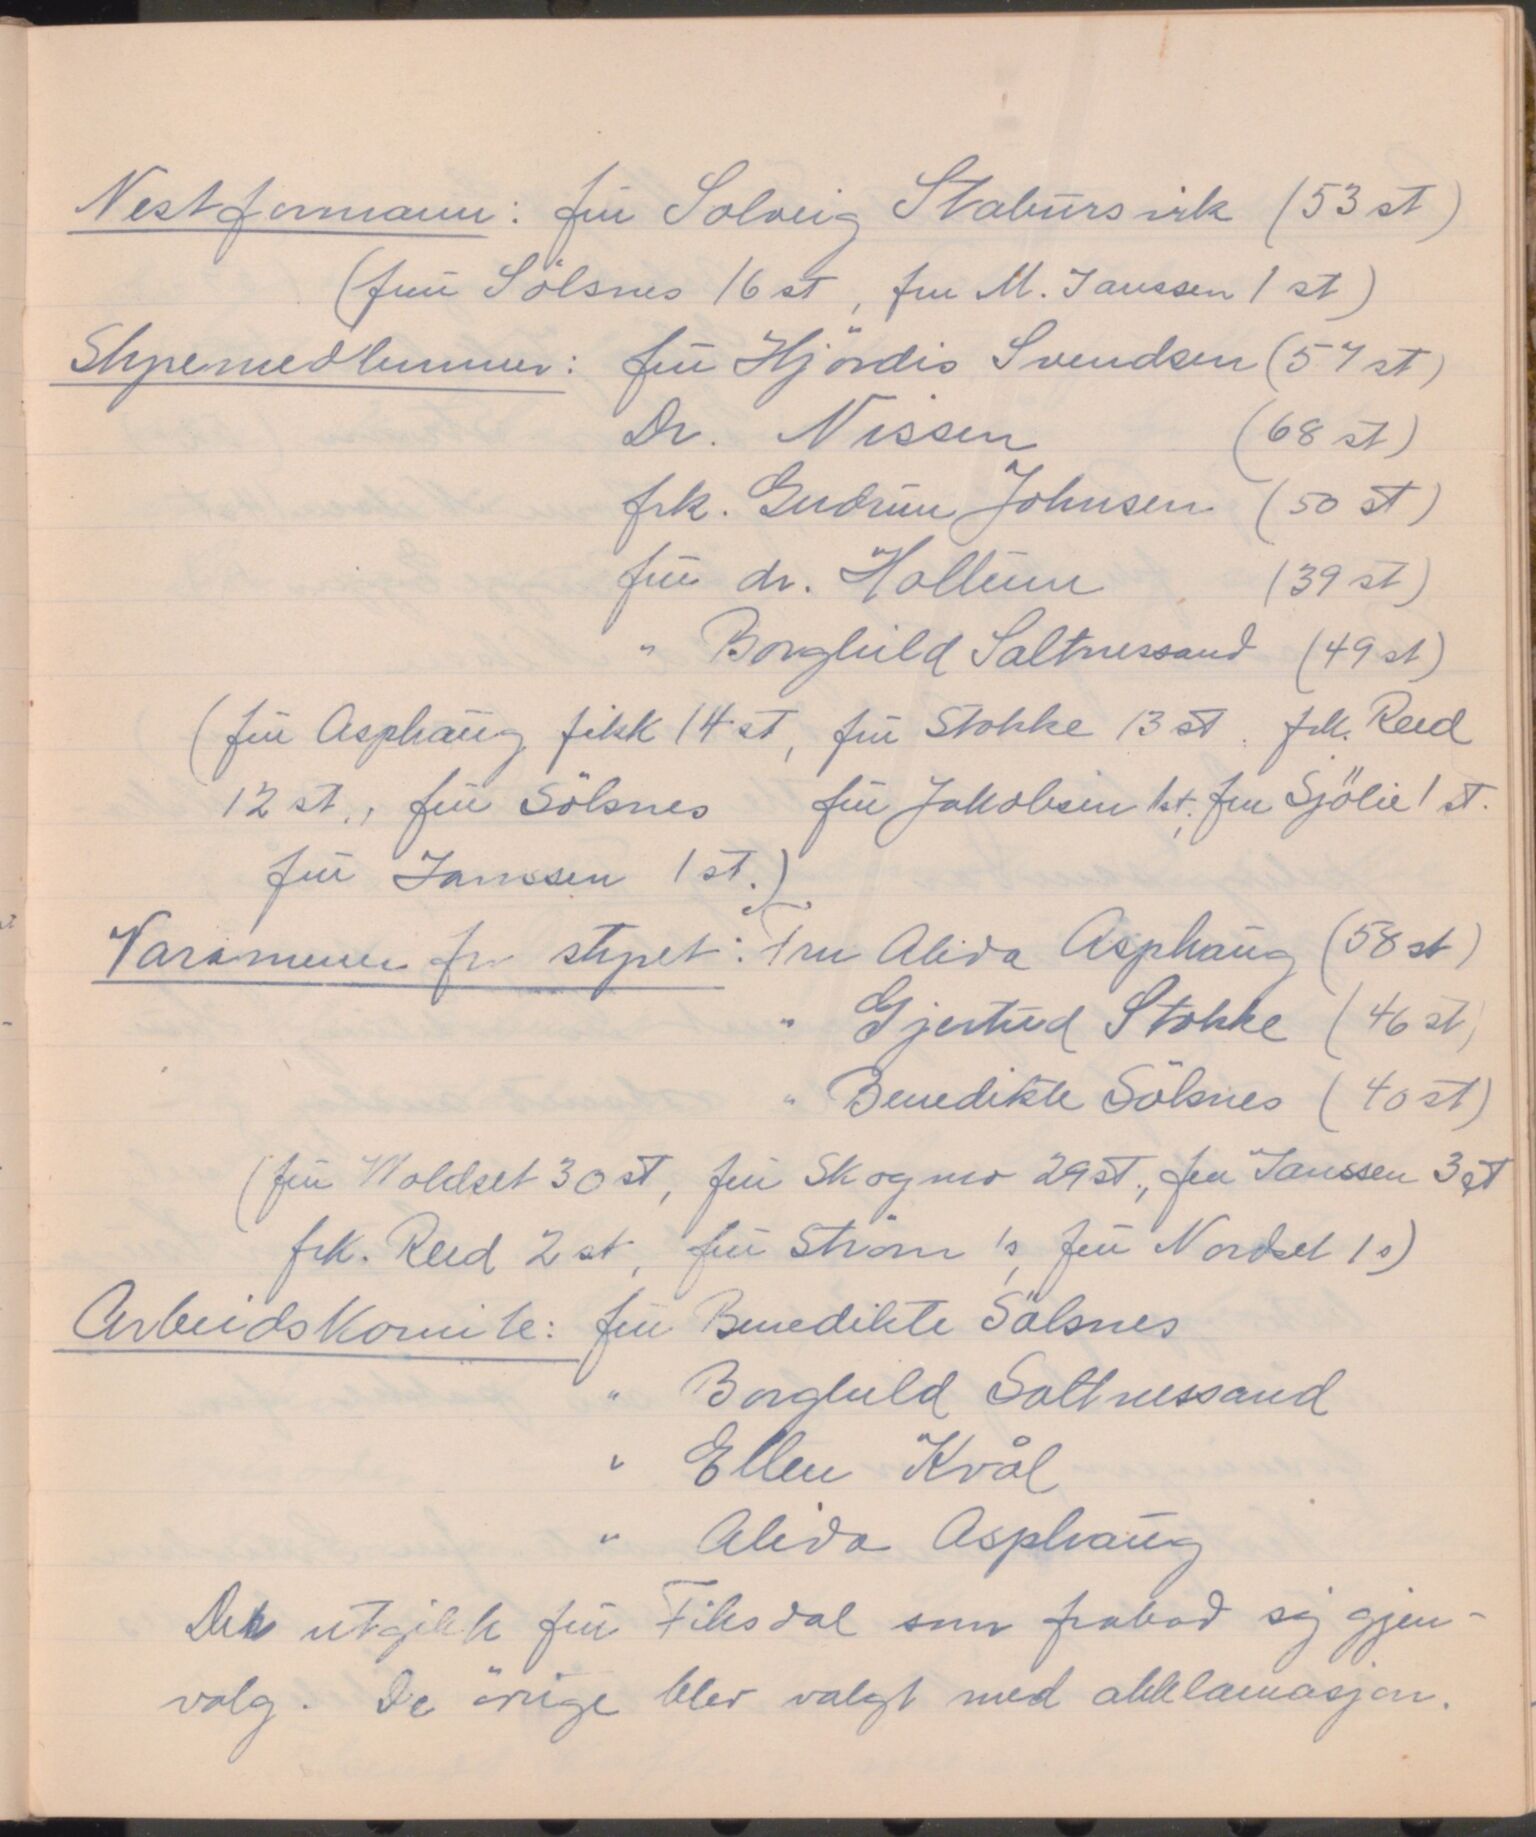 Nestformann: fru Solveig Stabursvik (53 st)
(fru Sölsnes 16 st, fru M. Janssen 1 st)
Styremedlemmer: fru Hjördis Svendsen (57 st)
Dr. Nissen (68 st)
frk. Gudrun Johnsen (50 st)
fru dr. Holtum (39 st)
" Borghild Saltnessand (49 st)
(fru Asphaug fikk 14 st, fru Stokke 13 st, frk. Reed
12 st., fru Sölsnes fru Jakobsen 1 st, fru Sjölie 1 st.
fru Janssen 1 st.)
Varamenn for styret: Fru Alida Asphaug (58 st)
" Gjertrud Stokke (46 st)
" Benedikte Sölsnes (40 st)
(fru Moldset 30 st, fru Skogmo 29 st., fru Janssen 3 st
frk. Reed 2 st, fru Ström 1 s, fru Nordset 1 s)
Arbeidskomite: fru Benedikte Sölsnes
" Borghild Saltnessand
" Ellen Kvål
" Alida Asphaug
Det utgikk fru Fiksdal som frabad sig gjen-
valg. De örige blev valgt med akklamasjon.